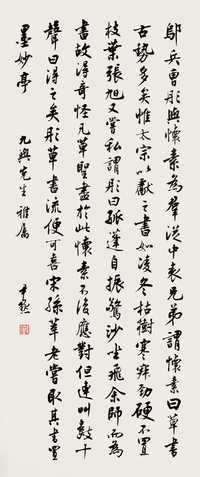 鄔兵曹彤與懷素為羣從中表兄弟謂懷素曰草書
古勢多矣惟太宗以獻之書如凌冬枯樹寒寂勁硬不置
枝葉張旭又嘗私謂彤曰孤蓬自振驚沙坐飛余師而為
書故得奇怪凡草聖盡於此懷素不復應對但連叫數十
聲曰得之矣彤草書流便可喜宋孫莘老嘗取其書置
墨妙亭
九與先生雅屬
尹默